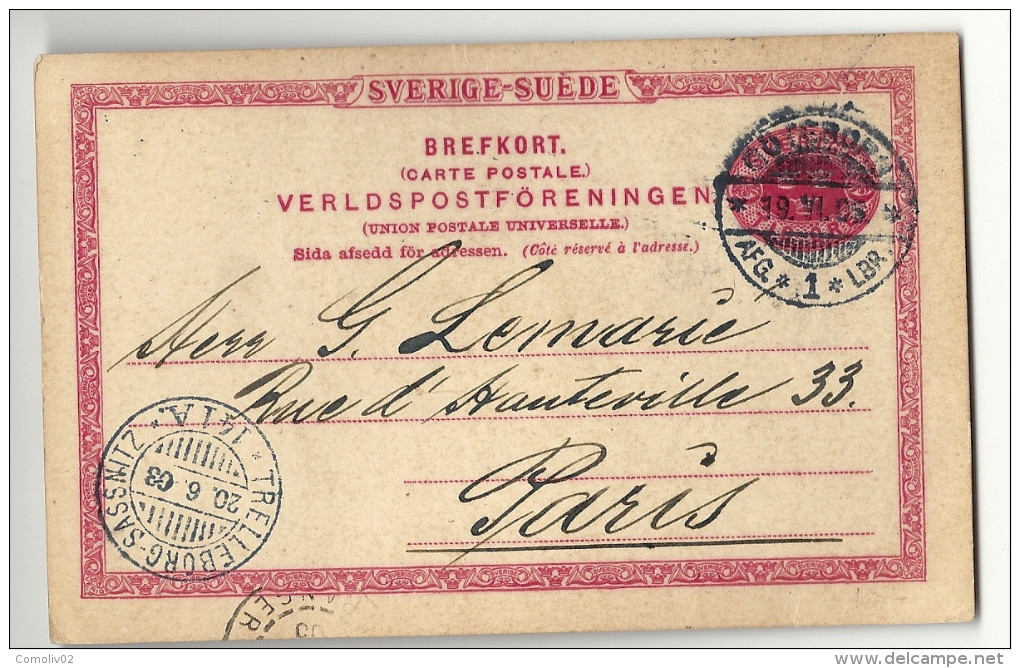 SVERIGE-SUÈDE
BREFKORT.
(CARTE POSTALE.)
VERLDSPOSTFÖRENINGEN
(UNION POSTALE UNIVERSELLE.)
Sida afsedd för adressen. (Côté réservé à l'adresse.)
19. VI.
AFG. * 1 * LBR.
Herr G. Lemarie
Rue d'Hauteville 33.
Paris
* TRELLEBORG-SASSNITZ * 141 A.
20. 6. 03
Comoliv02
delcampe.net